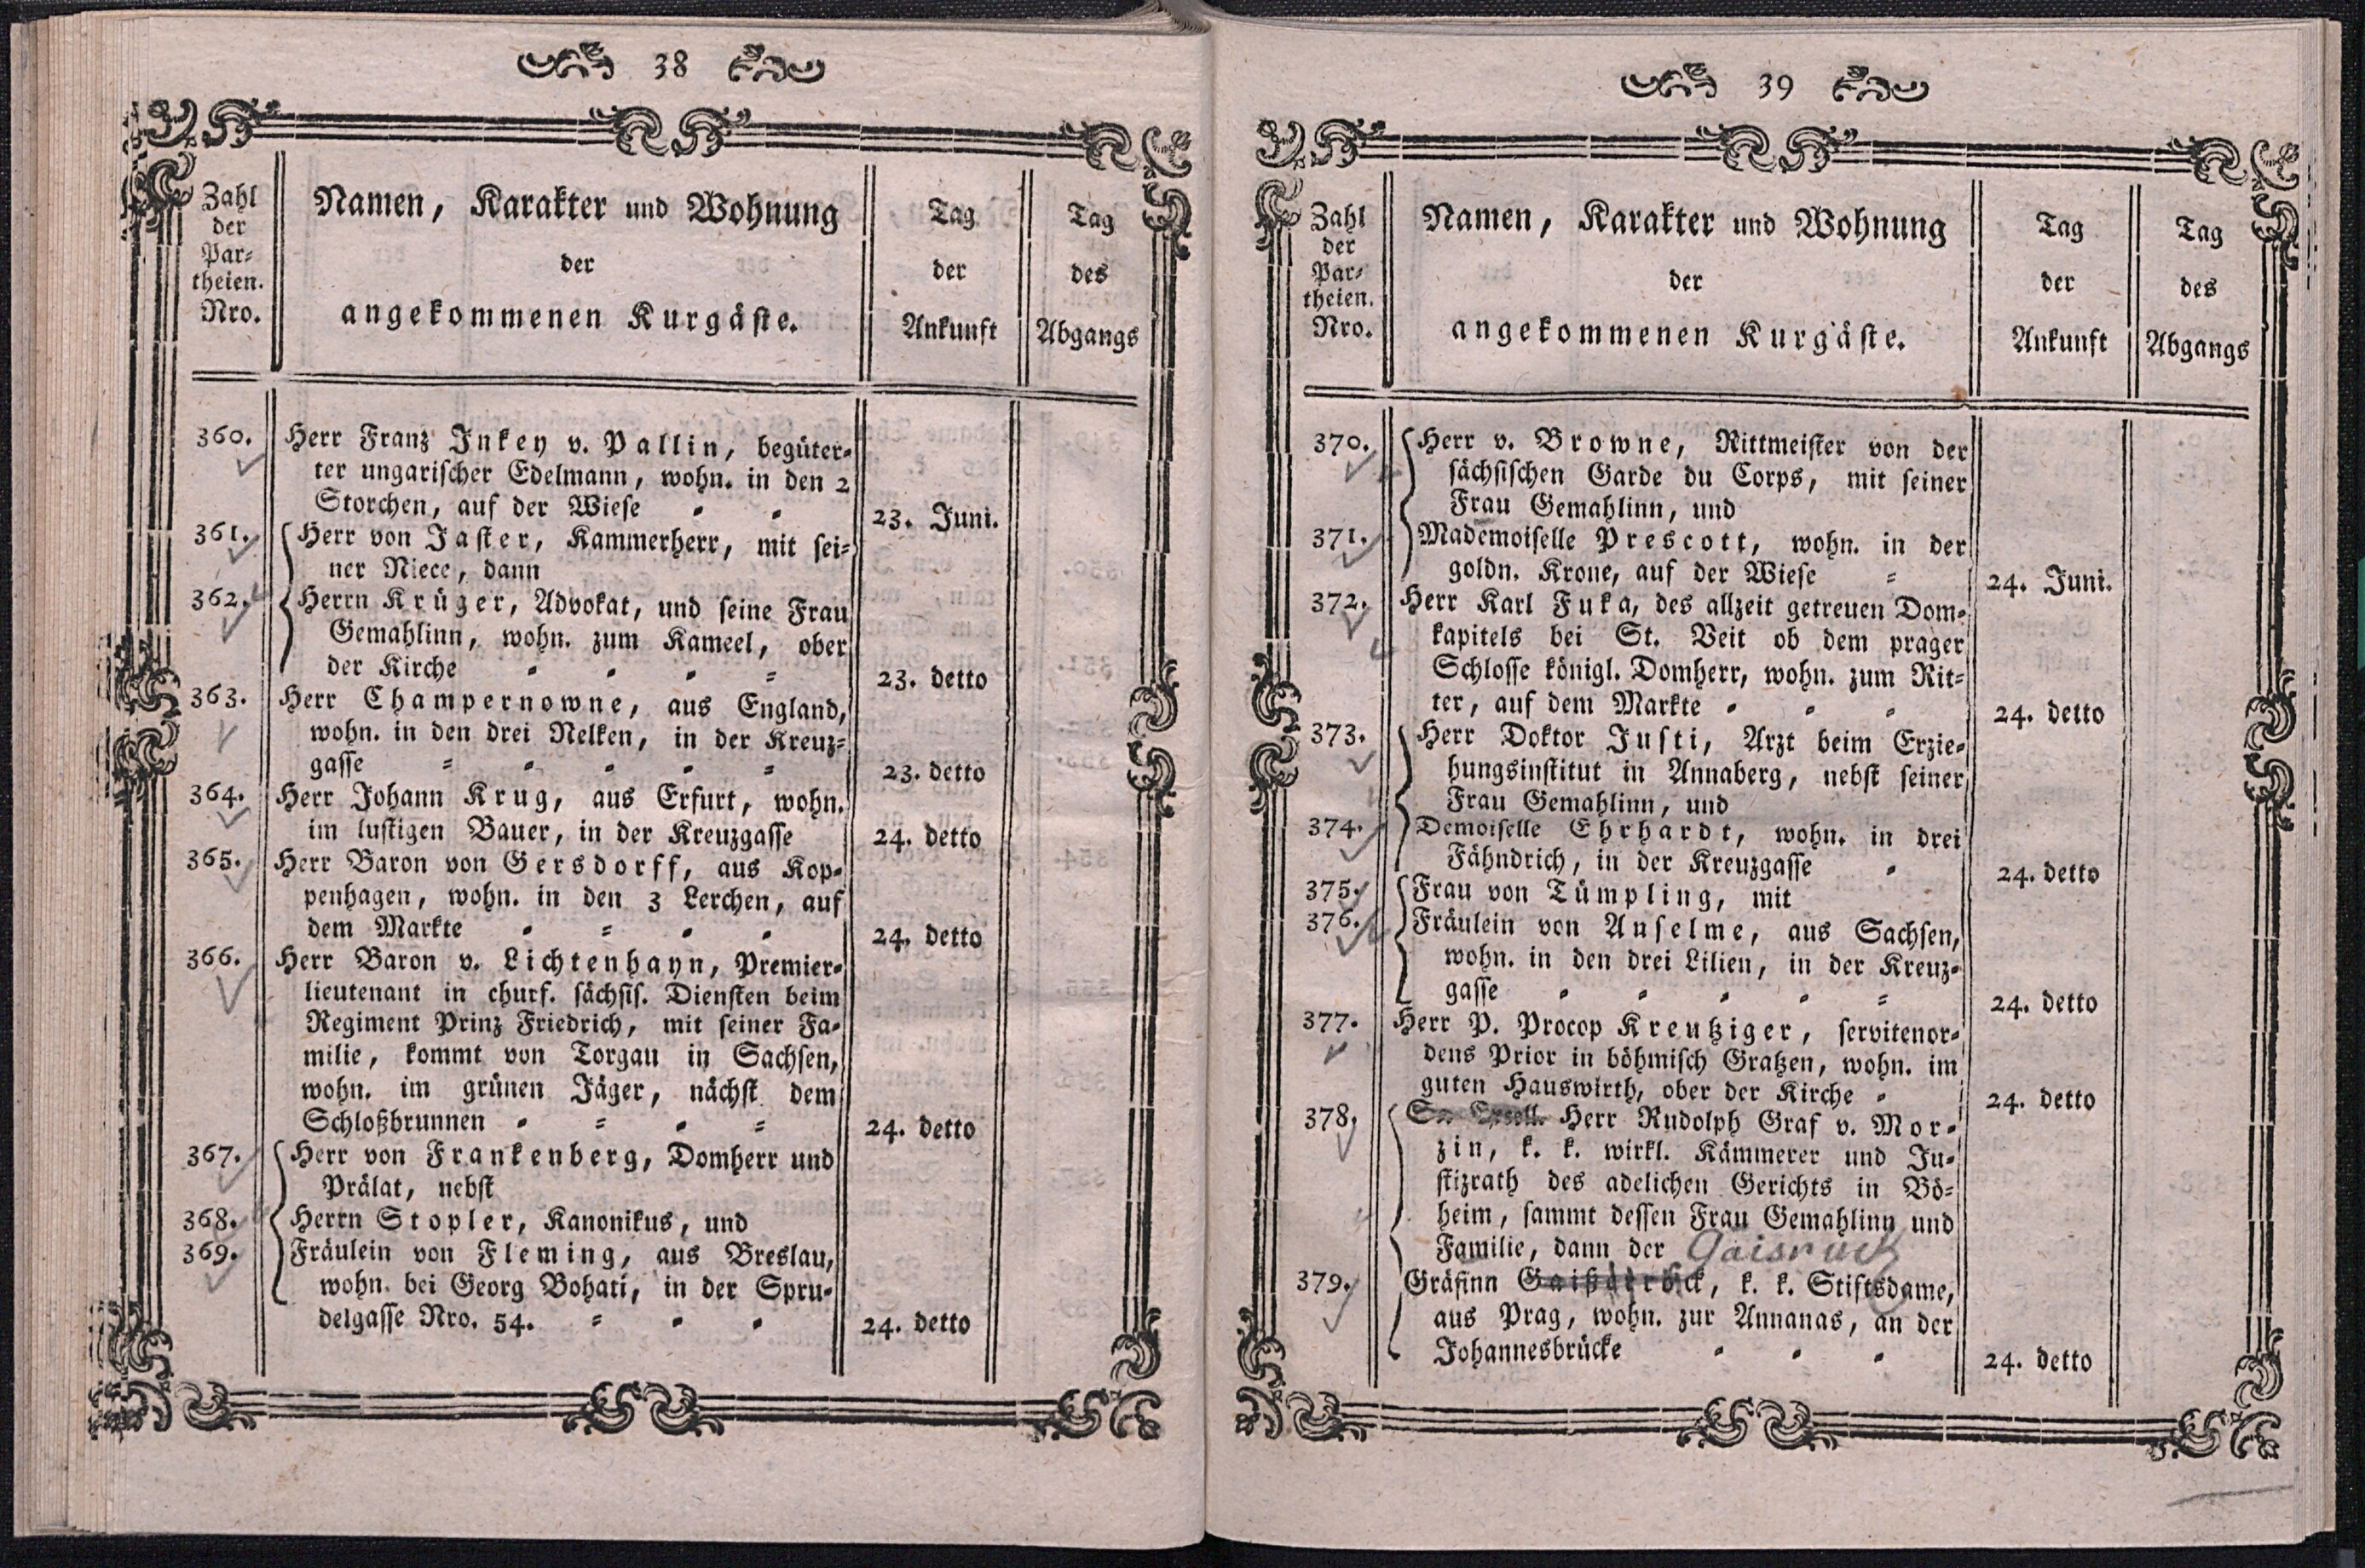 38
Zahl
der
Par-
theien.
Nro.
Namen, Karakter und Wohnung
der
angekommenen Kurgäste.
Tag
der
Ankunft
Tag
des
Abgangs
360. Herr Franz Inkey v. Pallin, begüter-
ter ungarischer Edelmann, wohn. in den 2
Storchen, auf der Wiese 23. Juni.
361. Herr von Jaster, Kammerherr, mit sei-
ner Niece, dann
362. Herrn Krüger, Advokat, und seine Frau
Gemahlinn, wohn. zum Kameel, ober
der Kirche 23. detto
363. Herr Champernowne, aus England,
wohn. in den drei Nelken, in der Kreuz-
gasse 23. detto
364. Herr Johann Krug, aus Erfurt, wohn.
im lustigen Bauer, in der Kreuzgasse 24. detto
365. Herr Baron von Gersdorff, aus Kop-
penhagen, wohn. in den 3 Lerchen, auf
dem Markte 24. detto
366. Herr Baron v. Lichtenhayn, Premier-
lieutenant in churf. sächsis. Diensten beim
Regiment Prinz Friedrich, mit seiner Fa-
milie, kommt von Torgau in Sachsen,
wohn. im grünen Jäger, nächst dem
Schloßbrunnen 24. detto
367. Herr von Frankenberg, Domherr und
Prälat, nebst
368. Herrn Stopler, Kanonikus, und
369. Fräulein von Fleming, aus Breslau,
wohn. bei Georg Bohati, in der Spru-
delgasse Nro. 54. 24. detto
39
Zahl
der
Par-
theien.
Nro.
Namen, Karakter und Wohnung
der
angekommenen Kurgäste.
Tag
der
Ankunft
Tag
des
Abgangs
370. Herr v. Browne, Rittmeister von der
sächsischen Garde du Corps, mit seiner
Frau Gemahlinn, und
371. Mademoiselle Prescott, wohn. in der
goldn. Krone, auf der Wiese 24. Juni.
372. Herr Karl Fuka, des allzeit getreuen Dom-
kapitels bei St. Veit ob dem prager
Schlosse königl. Domherr, wohn. zum Rit-
ter, auf dem Markte 24. detto
373. Herr Doktor Justi, Arzt beim Erzie-
hungsinstitut in Annaberg, nebst seiner
Frau Gemahlinn, und
374. Demoiselle Ehrhardt, wohn. in drei
Fähndrich, in der Kreuzgasse 24. detto
375. Frau von Tümpling, mit
376. Fräulein von Anselme, aus Sachsen,
wohn. in den drei Lilien, in der Kreuz-
gasse 24. detto
377. Herr P. Procop Kreutziger, servitenor-
dens Prior in böhmisch Gratzen, wohn. im
guten Hauswirth, ober der Kirche 24. detto
378. Herr Rudolph Graf v. Mor-
zin, k. k. wirkl. Kämmerer und Ju-
stizrath des adelichen Gerichts in Bö-
heim, sammt dessen Frau Gemahlinn und
Familie, dann der Gaisruck
379. Gräfinn k. k. Stiftsdame,
aus Prag, wohn. zur Annanas, an der
Johannesbrücke 24. detto